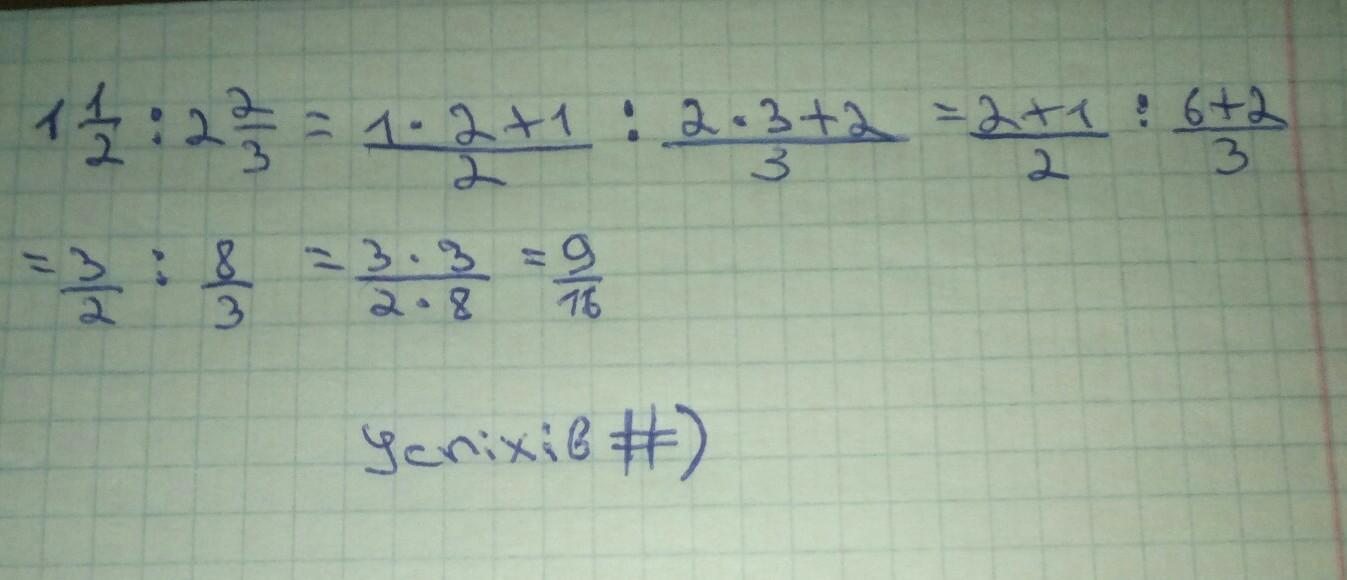 1 1/2 : 2 2/3 = (1·2+1)/2 : (2·3+2)/3 = (2+1)/2 : (6+2)/3
= 3/2 : 8/3 = (3·3)/(2·8) = 9/16
Успіхів #)